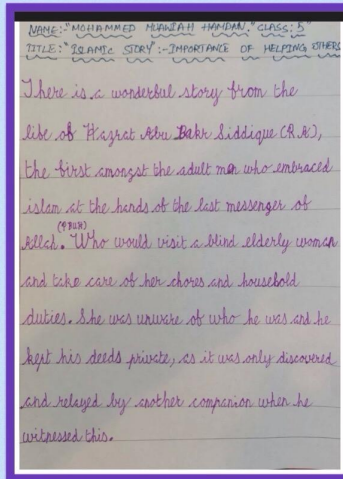 NAME:-"MOHAMMED MUAWIAH HAMDAN." CLASS: 5"
TITLE:-"ISLAMIC STORY":-IMPORTANCE OF HELPING OTHERS
There is a wonderful story from the
life of Hazrat Abu Bakr Siddique (R.A),
the first amongst the adult men who embraced
islam at the hands of the last messenger of
Allah. (PBUH) Who would visit a blind elderly woman
and take care of her chores and household
duties. She was unware of who he was and he
kept his deeds private, as it was only discovered
and relayed by another companion when he
witnessed this.